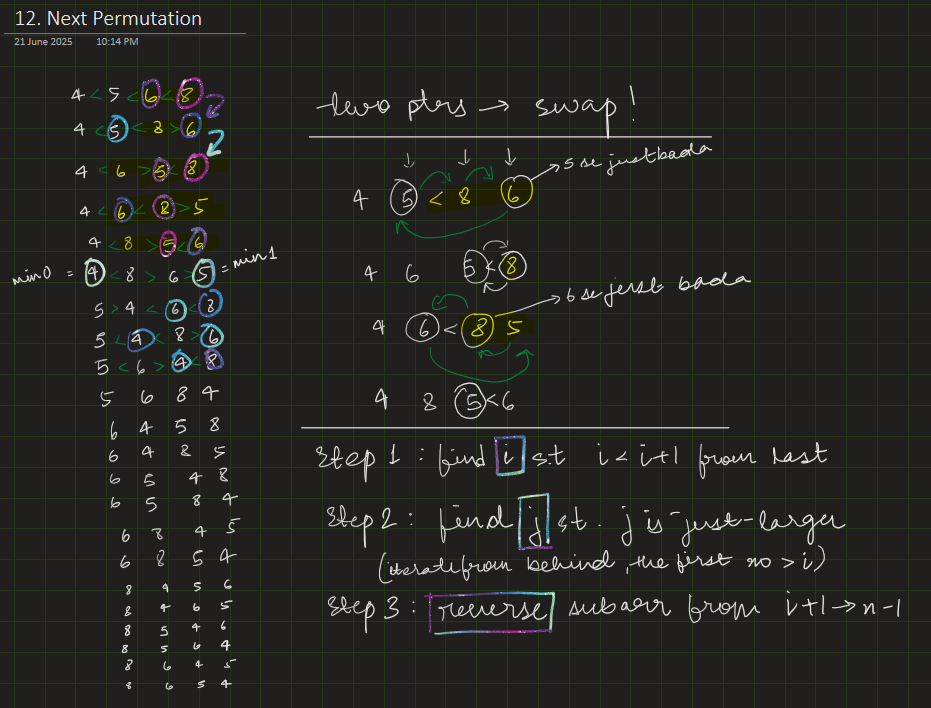 12. Next Permutation
21 June 2025 10:14 PM
4 < 5 < 6 < 8
4 < 5 < 8 > 6
4 < 6 > 5 < 8
4 < 6 < 8 > 5
4 < 8 > 5 < 6
min 0 = 4 < 8 > 6 > 5 = min 1
5 > 4 < 6 < 8
5 < 4 < 8 > 6
5 < 6 > 4 < 8
5 6 8 4
6 4 5 8
6 4 8 5
6 5 4 8
6 5 8 4
6 8 4 5
6 8 5 4
8 4 5 6
8 4 6 5
8 5 4 6
8 5 6 4
8 6 4 5
8 6 5 4
two ptrs → swap!
4 5 < 8 6 → 5 se just bada
4 6 5 < 8
4 6 < 8 5 → 6 se just bada
4 8 5 < 6
Step 1 : find i s.t i < i+1 from last
Step 2 : find j st. j is just-larger
(iterate from behind, the first no > i)
Step 3 : reverse subarr from i+1 → n-1